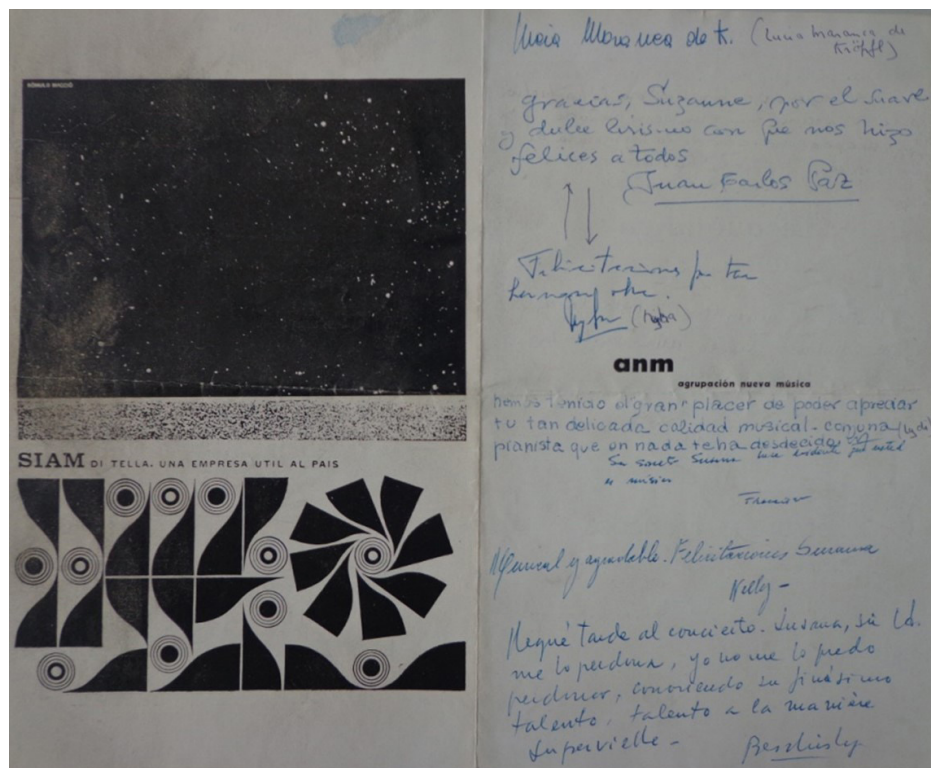 RÓMULO MACCIÓ
SIAM DI TELLA. UNA EMPRESA UTIL AL PAIS
Maranca de K. (Lucía Maranca de
Kröpfl)
gracias, Suzanne, por el suave
y dulce lirismo con que nos hizo
felices a todos
Juan Carlos Paz
Felicitaciones por tan
obra.
anm
agrupación nueva música
hemos tenido el gran placer de poder apreciar
tu tan delicada calidad musical - con una
pianista que en nada te ha desdecido
Su Suzanne hace evidente que usted
es
y agradable. Felicitaciones Susana
Nelly -
Llegué tarde al concierto. Susana, si Ud.
me lo perdona, yo no me lo puedo
perdonar, conociendo su finísimo
talento, talento a la manière
Supervielle -